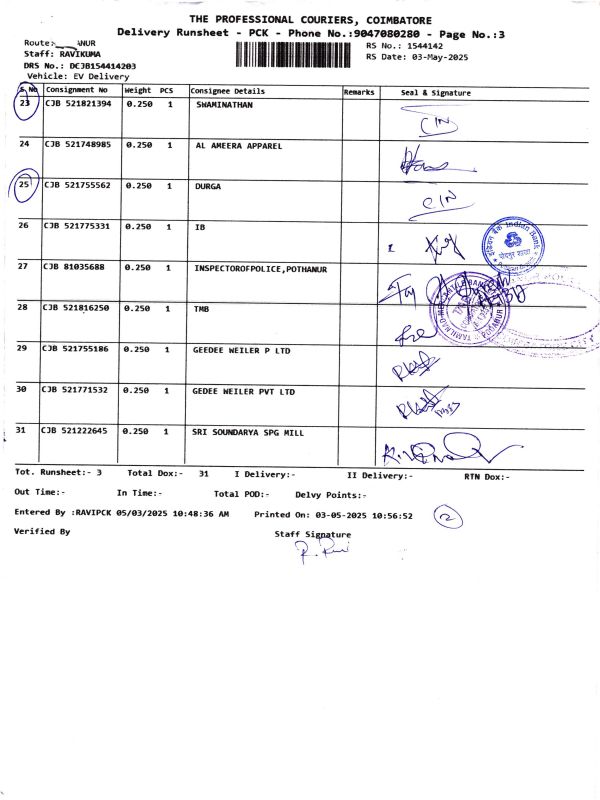 THE PROFESSIONAL COURIERS, COIMBATORE
Delivery Runsheet - PCK - Phone No.:9047080280 - Page No.:3
Route: ANUR
RS No.: 1544142
Staff: RAVIKUMA
RS Date: 03-May-2025
DRS No.: DCJB154414203
Vehicle: EV Delivery
S.No Consignment No Weight PCS Consignee Details Remarks Seal & Signature
23 CJB 521821394 0.250 1 SWAMINATHAN CIN
24 CJB 521748985 0.250 1 AL AMEERA APPAREL
25 CJB 521755562 0.250 1 DURGA CIN
26 CJB 521775331 0.250 1 IB
27 CJB 81035688 0.250 1 INSPECTOROFPOLICE,POTHANUR
28 CJB 521816250 0.250 1 TMB
29 CJB 521755186 0.250 1 GEEDEE WEILER P LTD
30 CJB 521771532 0.250 1 GEDEE WEILER PVT LTD
31 CJB 521222645 0.250 1 SRI SOUNDARYA SPG MILL
Tot. Runsheet:- 3 Total Dox:- 31 I Delivery:- II Delivery:- RTN Dox:-
Out Time:- In Time:- Total POD:- Delvy Points:-
Entered By :RAVIPCK 05/03/2025 10:48:36 AM Printed On: 03-05-2025 10:56:52 2
Verified By Staff Signature
इंडियन बैंक Indian Bank